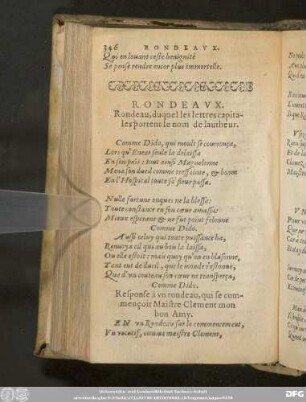 146 RONDEAVX.
Qui en louant ceste benignité
Se pense rendre encor plus immortelle.
RONDEAVX.
Rondeau, duquel les lettres capita-
les portent le nom de lautheur.
Comme Dido, qui moult se courrouça,
Lors qu'Eneas seule la delaissa
En son païs: tout ainsi Maguelonne
Mena son dueil comme tressaincte, & bonne
En l'Hospital toute sa fleur passa.
Nulle fortune onques ne la blessa:
Toute constance en son cœur amassa:
Mieux esperant & non fut point felonne
Comme Dido.
Aussi celuy qui toute puissance ha,
Renuoya cil qui au bois la laissa,
Ou elle estoit: mais quoy qu'on en blasonne,
Tant eut de dueil, que le monde s'estonne,
Que d'un cousteau son cœur ne transperça,
Comme Dido.
Response à vn rondeau, qui se com-
mençoit Maistre Clement mon
bon Amy.
EN vn Rondeau sur le commencement,
Vn vocatif, comme maistre Clement,